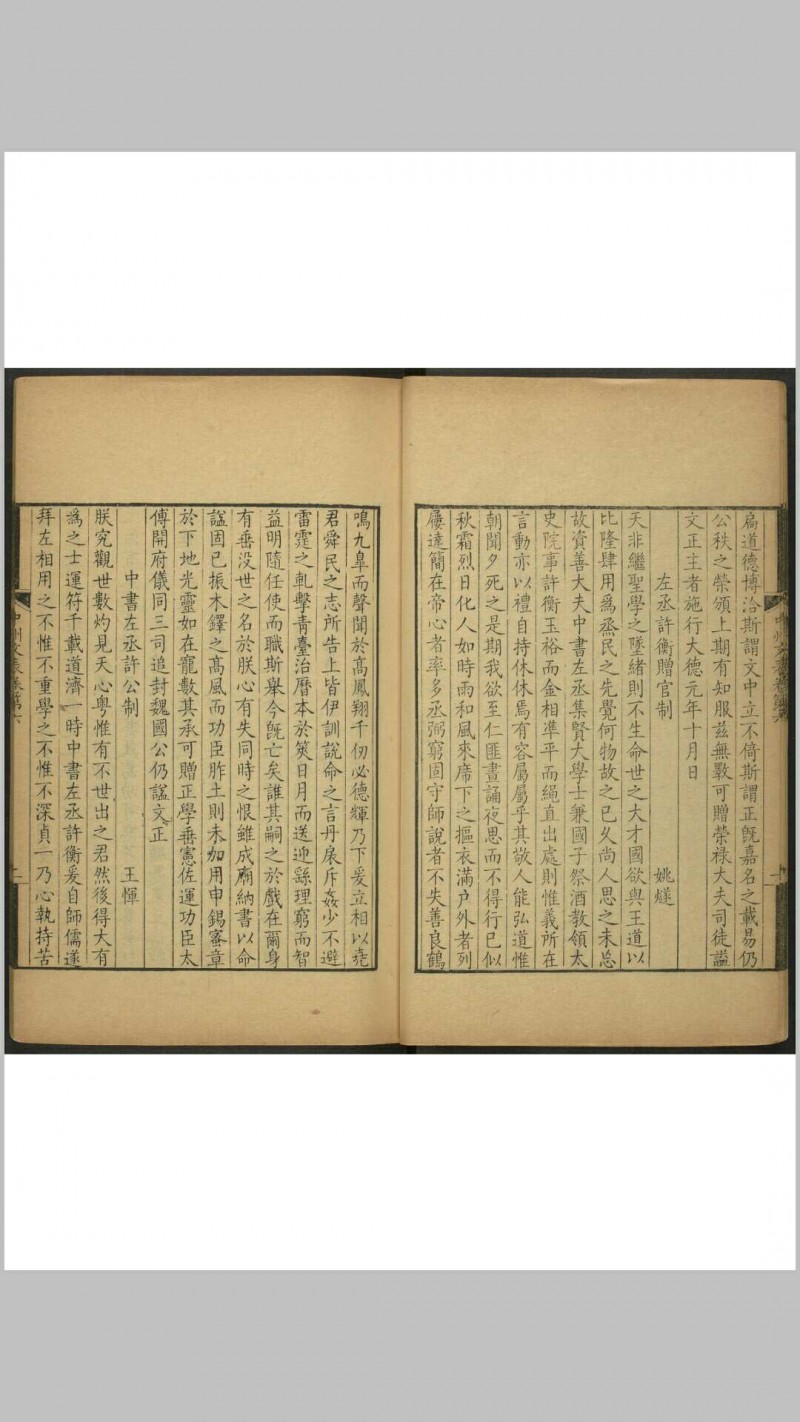 扃道德博洽斯謂文中立不倚斯謂正旣嘉名之載易仍
公秩之榮頒上期有知服玆無斁可贈榮禄大夫司徒謚
文正主者施行大德元年十月日
左丞許衡贈官制 姚燧
天非繼聖學之墜緒則不生命世之大才國欲與王道以
比隆肆用爲烝民之先覺何物故之已久尚人思之未忘
故資善大夫中書左丞集賢大學士兼國子祭酒教領太
史院事許衡玉裕而金相準平而繩直出處則惟義所在
言動亦以禮自持休休焉有容屬屬乎其敬人能弘道惟
朝聞夕死之是期我欲至仁匪晝誦夜思而不得行已似
秋霜烈日化人如時雨和風來席下之摳衣滿户外者列
屨達簡在帝心者率多丞弼窮固守師說者不失善良鶴
鳴九臯而聲聞於高鳳翔千仞必德輝乃下爰立相以堯
君舜民之志所告上皆伊訓說命之言丹扆斥姦少不避
雷霆之軋擊青臺治曆本於筴日月而送迎繇理窮而智
益明隨任使而職斯舉今旣亡矣誰其嗣之於戲在爾身
有垂没世之名於朕心有失同時之恨雖成廟納書以命
謚固已振木鐸之高風而功臣胙土則未加用申錫密章
於下地光靈如在寵數其承可贈正學垂憲佐運功臣太
傅開府儀同三司追封魏國公仍謚文正
中書左丞許公制 王惲
朕究觀世數灼見天心粤惟有不世出之君然後得大有
爲之士運符千載道濟一時中書左丞許衡爰自師儒遂
拜左相用之不惟不重學之不惟不深貞一乃心執持苦